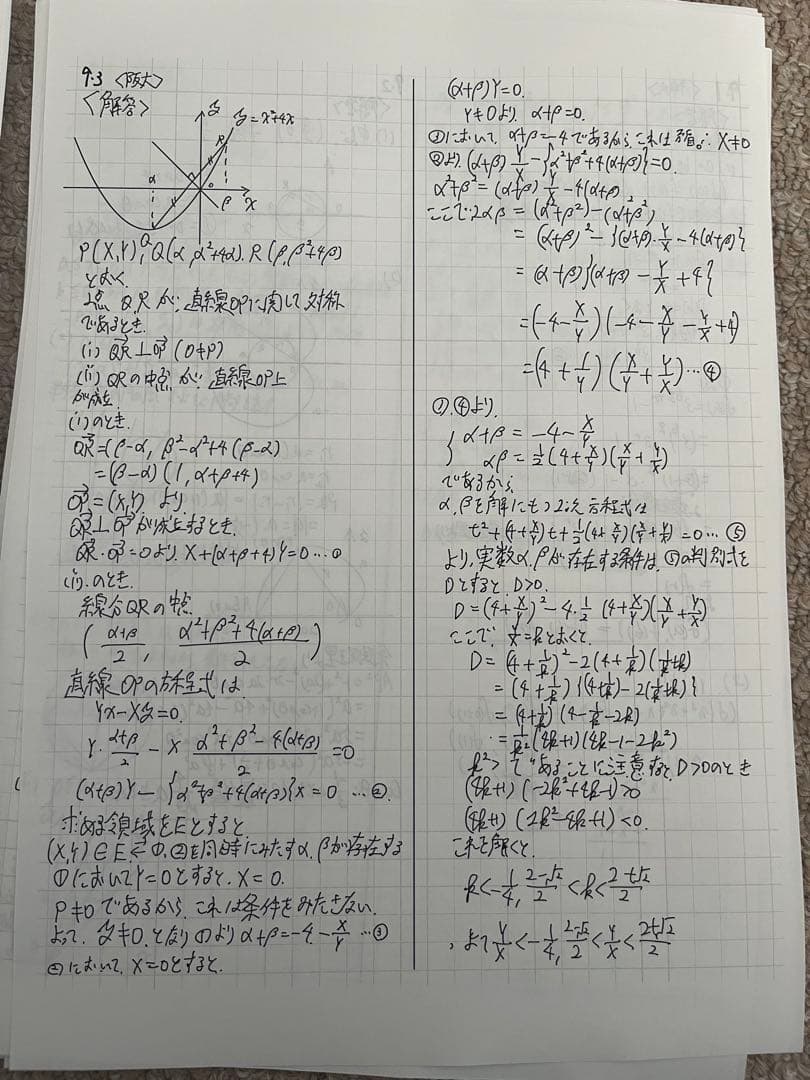 9.3 <阪大>
<解答>
y
y=x²+4x
R
α
0
β
x
Q
P(X,Y), Q(α, α²+4α). R(β, β²+4β)
とおく.
2点 Q.Rが、直線OPに関して対称
であるとき.
(i) QR⊥OP (O≠P)
(ii) QRの中点が、直線OP上
が成立
(i)のとき.
QR=(β-α, β²-α²+4(β-α)
=(β-α)(1, α+β+4)
OP=(X,Y) より
QR⊥OPが成立するとき.
QR・OP=0より. X+(α+β+4)Y=0…①
(ii).のとき.
線分QRの中点.
(α+β/2, α²+β²+4(α+β)/2)
直線OPの方程式は
Yx-Xy=0.
Y・α+β/2 - X α²+β²-4(α+β)/2 =0
(α+β)Y-{α²+β²+4(α+β)}X=0 …②.
求める領域をEとすると
(X,Y)∈E⇄①,②を同時にみたすα.βが存在する
①においてY=0とすると. X=0.
P≠0であるから. これは条件をみたさない.
よって. y≠0.となり①よりα+β=-4-X/Y…③
②において, X=0とすると.
(α+β)Y=0.
Y≠0より. α+β=0.
③において, α+β=-4であるから. これは矛盾∴X≠0
②より. (α+β)Y/X-{α²+β²+4(α+β)}=0.
α²+β²=(α+β)Y/X-4(α+β)
ここで、2αβ=(α²+β²)-(α²+β²)
=(α+β)²-{(α+β)・Y/X-4(α+β)}
=(α+β){(α+β)-Y/X+4}
=(-4-X/Y)(-4-X/Y-Y/X+4)
=(4+1/Y)(X/Y+Y/X)…④
①.④より.
α+β=-4-X/Y
αβ=1/2(4+X/Y)(X/Y+Y/X)
であるから,
α,βを解にもつ2次方程式は
t²+(4+X/Y)t+1/2(4+X/Y)(X/Y+Y/X)=0…⑤
より,実数α,βが存在する条件は.⑤の判別式を
Dとすると. D>0.
D=(4+X/Y)²-4・1/2(4+X/Y)(X/Y+Y/X)
ここで. Y/X=kとおくと.
D=(4+1/k)²-2(4+1/k)(1/k+k)
=(4+1/k){(4+1/k)-2(1/k+k)}
=(4+1/k)(4-1/k-2k)
=1/k²(4k+1)(4k-1-2k²)
k²>であることに注意すると. D>0のとき
(4k+1)(-2k²+4k-1)>0
(4k+1)(2k²-4k+1)<0.
これを解くと.
k<-1/4, 2-√2/2<k<2+√2/2
よってY/X<-1/4, 2-√2/2<Y/X<2+√2/2